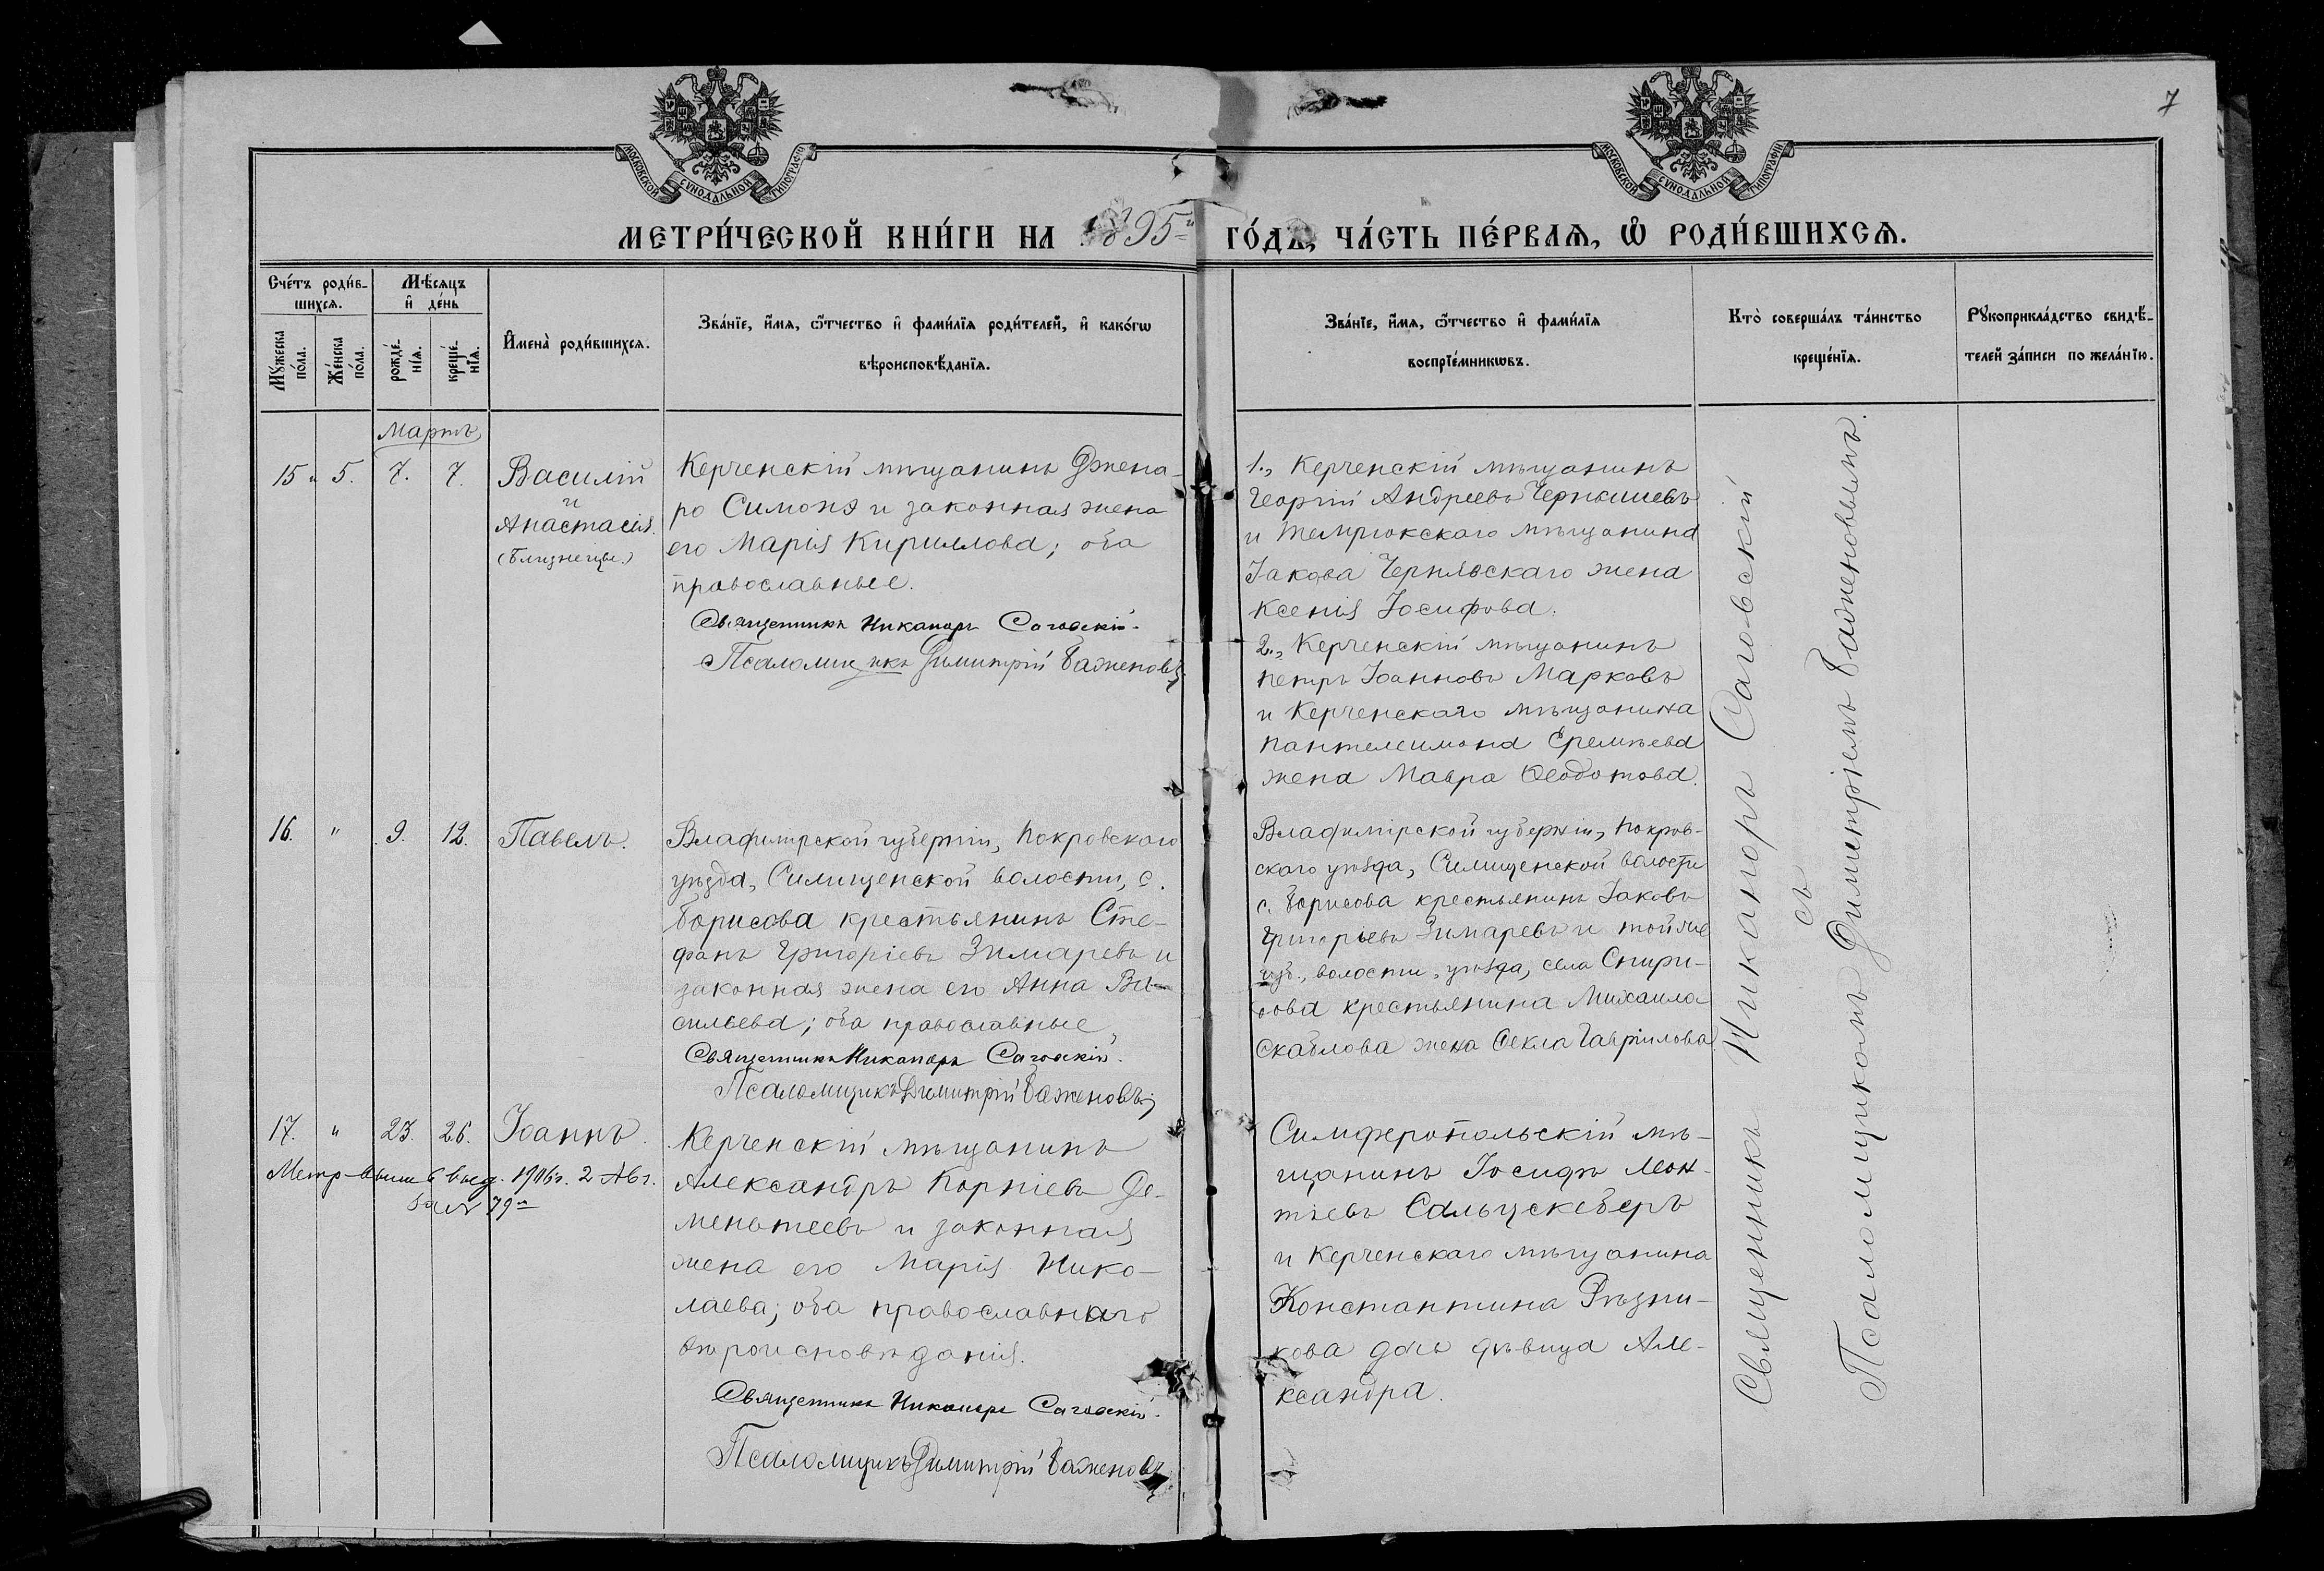 7
МОСКОВСКОЙ СУНОДАЛЬНОЙ ТИПОГРАФІИ
МОСКОВСКОЙ СУНОДАЛЬНОЙ ТИПОГРАФІИ
МЕТРИ́ЧЕСКОЙ КНИ́ГИ НА 1895й ГО́ДЪ, ЧА́СТЬ ПЕ́РВАѦ, Ѡ РОДИ́ВШИХСѦ.
Сче́тъ роди́в-
шихсѧ.
Мꙋ́жеска по́ла.
Же́нска по́ла.
Мѣ́сѧцъ
и҆ де́нь
рожде́-
нїѧ.
креще́-
нїѧ.
И҆мена̀ роди́вшихсѧ.
Зва́нїе, и҆́мѧ, ѻ҆́тчество и҆ фами́лїѧ роди́телей, и҆ како́гѡ
вѣроисповѣ́данїѧ.
Зва́нїе, и҆́мѧ, ѻ҆́тчество и҆ фами́лїѧ
воспрїе́мникѡвъ.
Кто̀ соверша́лъ та́инство
креще́нїѧ.
Рꙋкоприкла́дство свидѣ́-
телей за́писи по жела́нїю.
Мартъ
15 и 5. 7. 7.
Василій
и
Анастасія.
(близнецы.)
Керченскій мѣщанинъ Джена-
ро Симонэ и законная жена
его Марія Кириллова; оба
православные.
Священникъ Никаноръ Саговскій.
Псаломщикъ Димитрій Баженовъ
1., Керченскій мѣщанинъ
Георгій Андреевъ Чернышевъ
и Темрюкскаго мѣщанина
Іакова Чернявскаго жена
Ксенія Іосифова.
2., Керченскій мѣщанинъ
Петръ Іоанновъ Марковъ
и Керченскаго мѣщанина
Пантелеимона Еремѣева
жена Мавра Ѳеодотова.
16. " 9. 12. Павелъ.
Владимірской губерніи, Покровскаго
уѣзда, Силищенской волости, с.
Борисова крестьянинъ Сте-
фанъ Григоріевъ Зимаревъ и
законная жена его Анна Ва-
сильева; оба православные,
Священникъ Никаноръ Саговскій.
Псаломщикъ Димитрій Баженовъ
Владимірской губерніи, Покров-
скаго уѣзда, Силищенской волости
с. Борисова крестьянинъ Іаковъ
Григорьевъ Зимаревъ и той же
губ., волости, уѣзда, села Спири-
дова крестьянина Михаила
Скаблова жена Ѳекла Гавріилова.
17. " 23. 26. Іоаннъ.
Метр. выпись выд. 1916 г. 2 Авг.
за № 79
Керченскій мѣщанинъ
Александръ Корніевъ Де-
ментеевъ и законная
жена его Марія Нико-
лаева; оба православнаго
вѣроисповѣданія.
Священникъ Никаноръ Саговскій.
Псаломщикъ Димитрій Баженовъ
Симферопольскій мѣ-
щанинъ Іосифъ
и Керченскаго мѣщанина
Константина Рѣзни-
кова дочь дѣвица Але-
ксандра.
Священникъ Никаноръ Саговскій
съ
Псаломщикомъ Димитріемъ Баженовымъ.